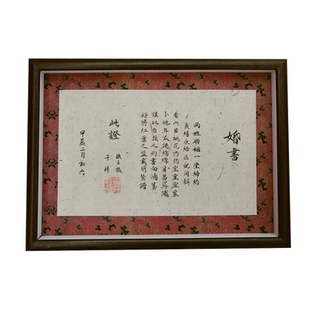 婚書
兩姓聯姻一堂締約
良緣永結匹配同稱
看此日桃花灼灼宜室宜家
卜他年瓜瓞綿綿爾昌爾熾
謹以白頭之約書向鴻箋
好將紅葉之盟載明鴛譜
此證
甲辰二月初六